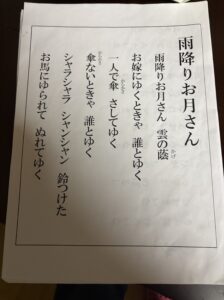 雨降りお月さん
雨降りお月さん 雲の蔭
お嫁にゆくときゃ 誰とゆく
一人で傘 さしてゆく
傘ないときゃ 誰とゆく
シャラシャラ シャンシャン 鈴つけた
お馬にゆられて ぬれてゆく